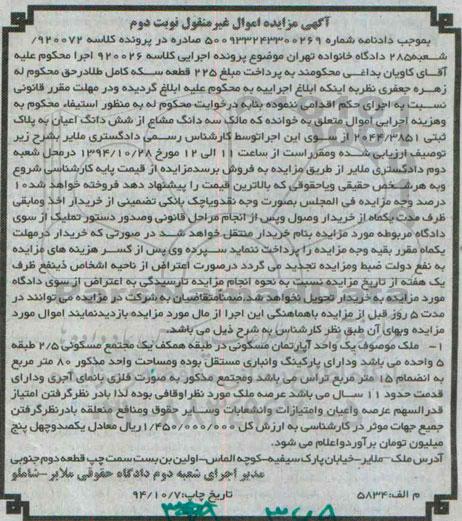 آگهی مزایده اموال غیرمنقول نوبت دوم
بموجب دادنامه شماره ۵۰۰۹۳۳۲۴۳۳۰۰۲۶۹ صادره در پرونده کلاسه ۹۲۰۰۷۲/
شعبه۲۸۵ دادگاه خانواده تهران موضوع پرونده اجرایی کلاسه ۹۲۰۰۲۶ اجرا محکوم علیه
آقای کاویان بداغی محکومند به پرداخت مبلغ ۲۲۵ قطعه سکه کامل طلادرحق محکوم له
زهره جعفری نظربه اینکه ابلاغ اجراییه به محکوم علیه ابلاغ گردیده ودر مهلت مقرر قانونی
نسبت به اجرای حکم اقدامی ننموده بنابه درخواست محکوم له به منظور استیفاء محکوم به
وهزینه اجرایی اموال متعلق به خوانده که مالک سه دانگ مشاع از شش دانگ اعیان به پلاک
ثبتی ۲۰۴۴/۳۸۵۱ از سوی این اجراتوسط کارشناس رسمی دادگستری ملایر بشرح زیر
توصیف ارزیابی شده ومقرراست از ساعت ۱۱ الی ۱۲ مورخ ۱۳۹۴/۱۰/۲۸ درمحل شعبه
دوم دادگستری ملایر از طریق مزایده به فروش برسدمزایده از قیمت پایه کارشناسی شروع
وبه هرشخص حقیقی ویاحقوقی که بالاترین قیمت را پیشنهاد دهد فروخته خواهد شد۱۰
درصد وجه مزایده فی المجلس بصورت وجه نقدویاچک بانکی تضمینی از خریدار اخذ ومابقی
ظرف مدت یکماه از خریدار وصول وپس از انجام مراحل قانونی وصدور دستور تملیک از سوی
دادگاه مربوطه مورد مزایده بنام خریدار منتقل خواهد شد در صورتی که خریدار درمهلت
یکماه مقرر بقیه وجه مزایده را پرداخت ننماید سپرده وی پس از کسر هزینه های مزایده
به نفع دولت ضبط ومزایده تجدید می گردد درصورت اعتراض از ناحیه اشخاص ذینفع ظرف
یک هفته از تاریخ مزایده نسبت به نحوه انجام مزایده تارسیدگی به اعتراض از سوی دادگاه
مورد مزایده به خریدار تحویل نخواهد شد.ضمنامتقاضیان به شرکت در مزایده می توانند در
مدت ۵ روز قبل از مزایده باهماهنگی این اجرا از مال مورد مزایده بازدیدنمایند اموال مورد
مزایده وبهای آن طبق نظر کارشناس به شرح ذیل می باشد.
۱- ملک موصوف یک واحد آپارتمان مسکونی در طبقه همکف یک مجتمع مسکونی ۲/۵ طبقه
۵ واحده می باشد ودارای پارکینگ وانباری مستقل بوده ومساحت واحد مذکور ۸۰ متر مربع
به انضمام ۱۵ متر مربع تراس می باشد ومجتمع مذکور به صورت فلزی بانمای آجری ودارای
قدمت حدود ۱۱ سال می باشد عرصه ملک مورد نظراوقافی بوده لذا بادر نظرگرفتن امتیاز
قدرالسهم عرصه واعیان وامتیازات وانشعابات وسایر حقوق ومنافع متعلقه بادرنظرگرفتن
جمیع جهات موثر در کارشناسی به ارزش کل ۱/۴۵۰/۰۰۰/۰۰۰ریال معادل یکصدوچهل پنج
میلیون تومان برآوردواعلام می شود.
آدرس ملک-ملایر-خیابان پارک سیفیه-کوچه الماس-اولین بن بست سمت چپ قطعه دوم جنوبی
مدیر اجرای شعبه دوم دادگاه حقوقی ملایر-شاملو
م الف: ۵۸۳۴ تاریخ چاپ: ۹۴/۱۰/۷